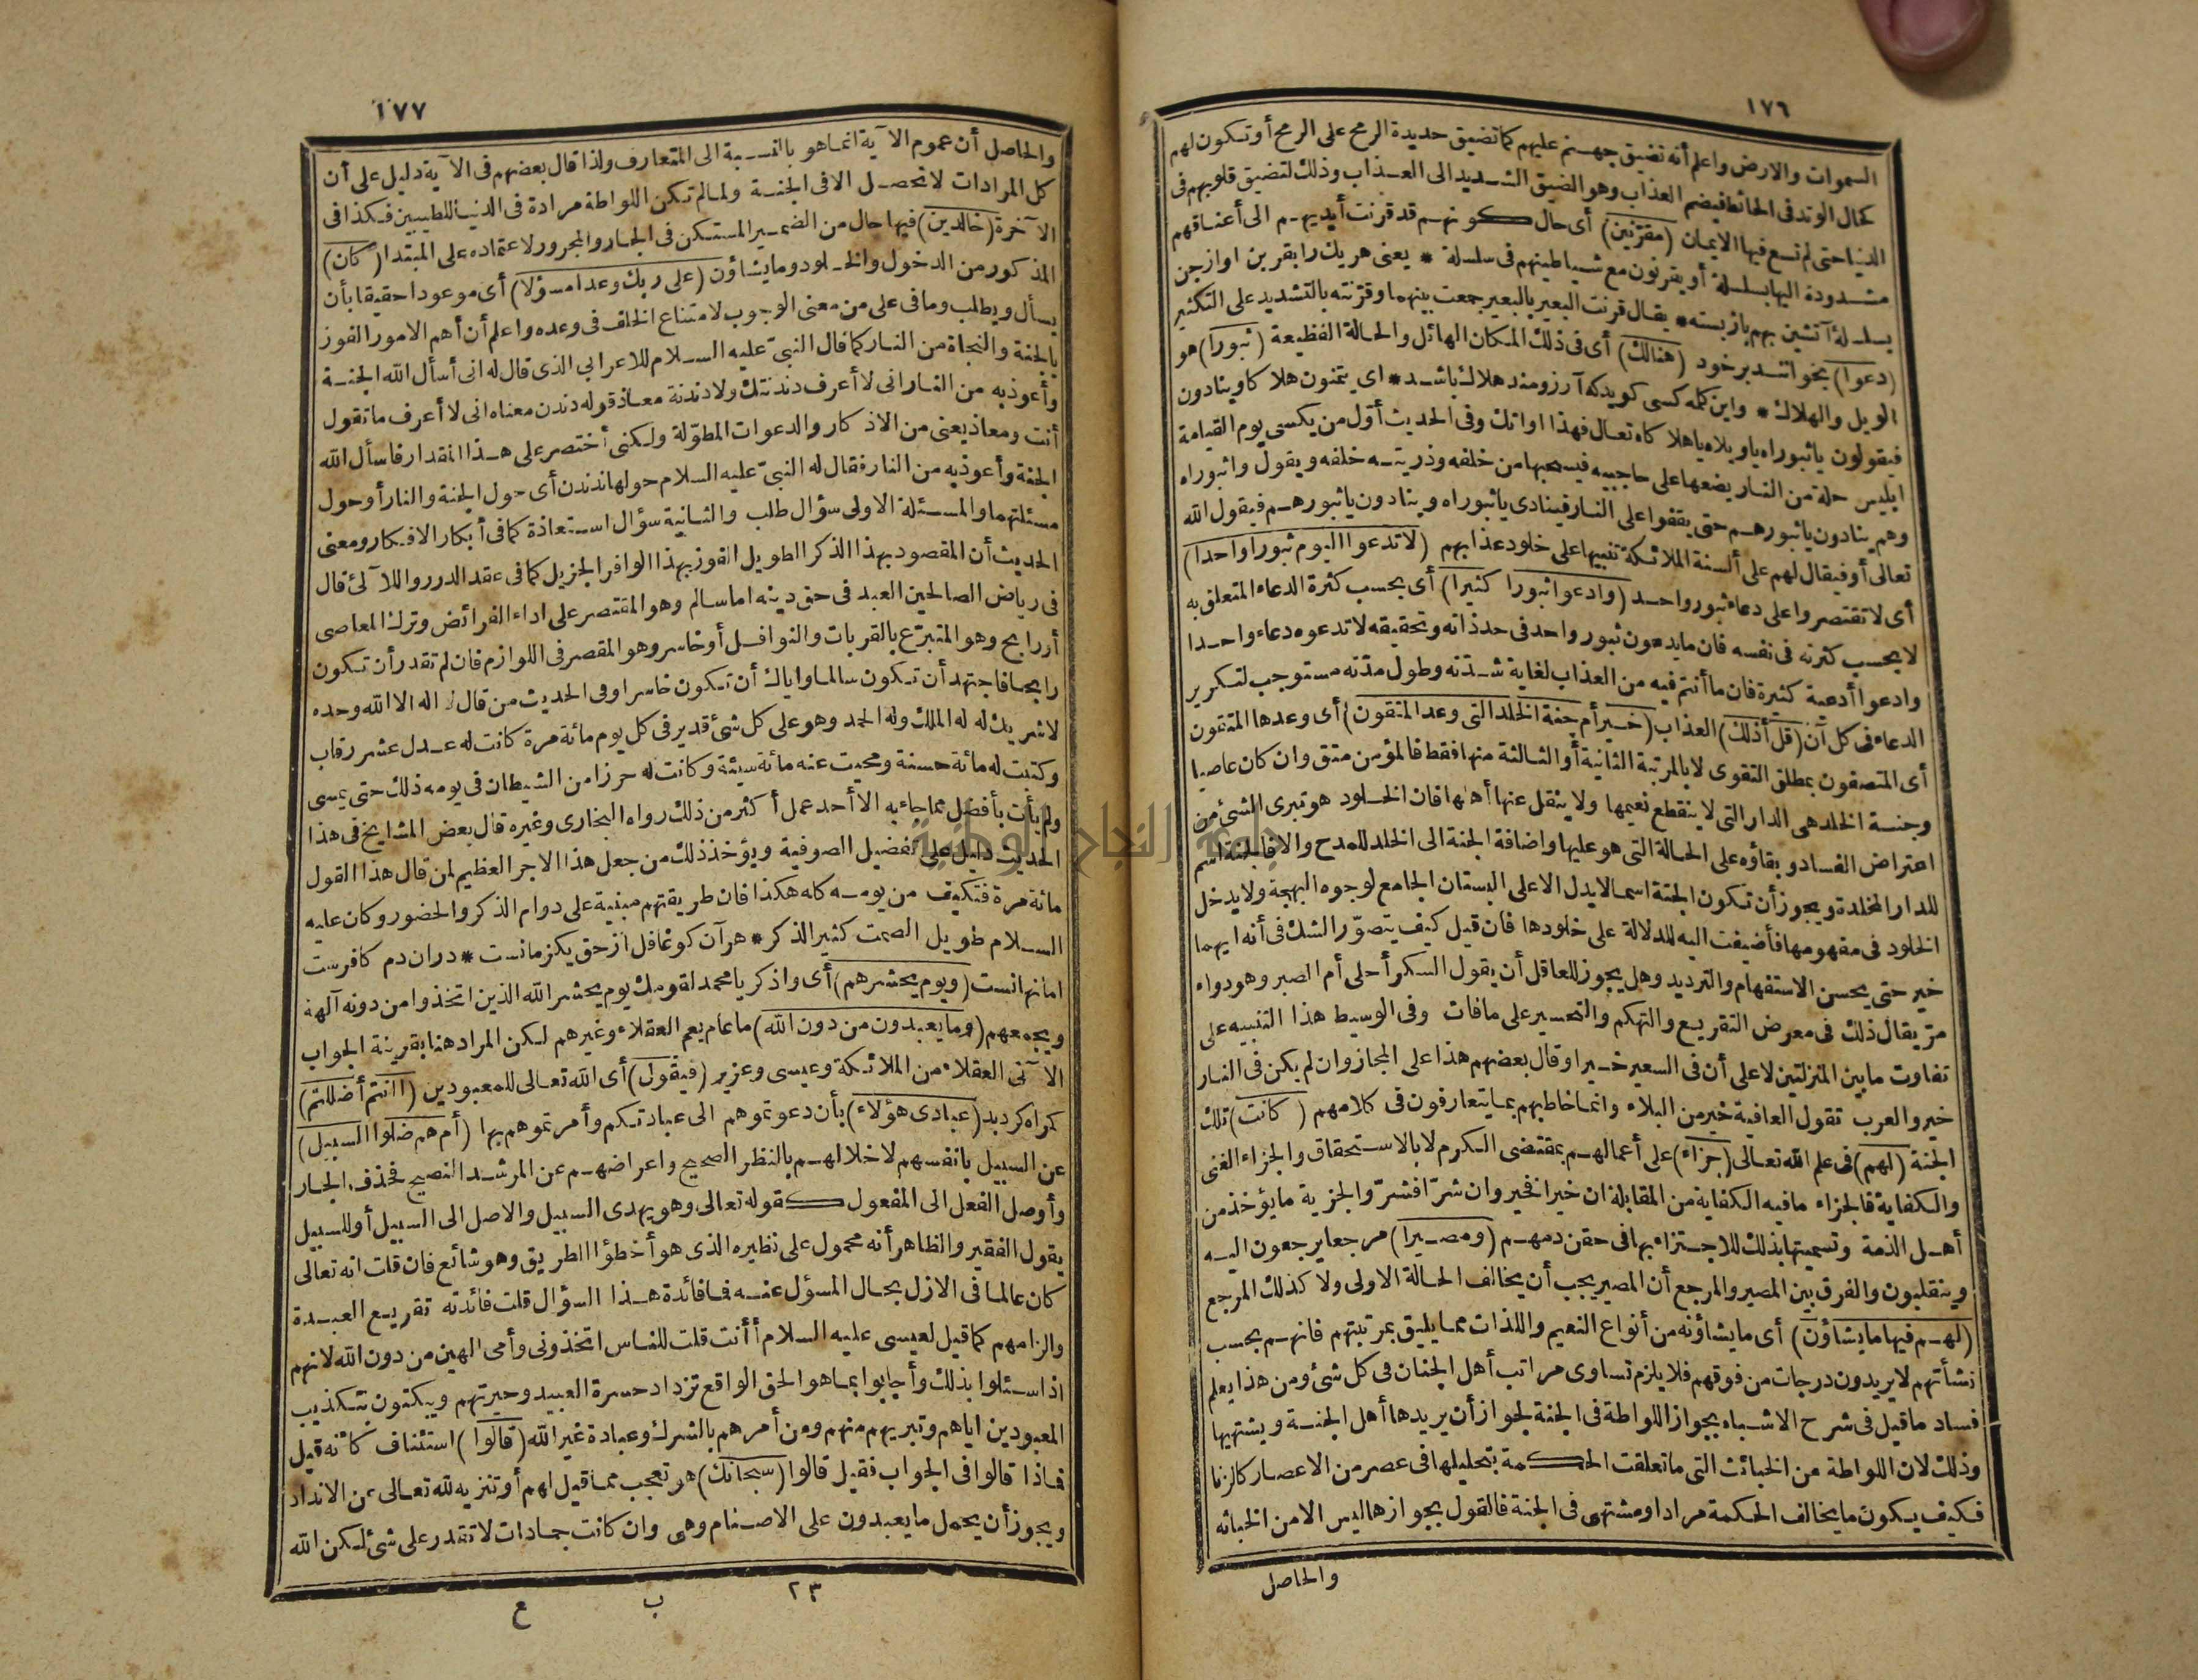 ١٧٦
السموات والارض واعلم أنه تضيق جهنم عليهم كما تضيق حديدة الرمح على الرمح أو تكون لهم
كحال الوتد فى الحائط فيضم العذاب وهو الضيق الشديد الى العذاب وذلك لتضيق قلوبهم فى
الدنيا حتى لم تسع فيها الايمان (مقرّنين) أى حال كونهم قد قرنت أيديهم الى أعناقهم
مشدودة اليها بسلسلة أو يقرنون مع شياطينهم فى سلسلة * يعنى هر يك را بقرين او از جن
بسلسلهٔ آتشين بهم باز بسته * يقال قرنت البعير بالبعير جمعت بينهما وقرّنته بالتشديد على التكثير
(دعوا) بخواتند بر خود (هنالك) أى فى ذلك المكان الهائل والحالة الفظيعة (ثبورا) هو
الويل والهلاك * واين كلمه كسى كويد كه آرزومند هلاك باشد * اى يتمنون هلاكا وينادون
فيقولون يا ثبوراه يا ويلاه يا هلاكاه تعال فهذا اوانك وفى الحديث أوّل من يكسى يوم القيامة
ابليس حلة من النار يضعها على حاجبيه فيسحبها من خلفه وذريته خلفه ويقول واثبوراه
وهم ينادون يا ثبورهم حتى يقفوا على النار فينادى يا ثبوراه وينادون يا ثبورهم فيقول الله
تعالى أو فيقال لهم على ألسنة الملائكة تنبيها على خلود عذابهم (لا تدعوا اليوم ثبورا واحدا)
أى لا تقتصروا على دعاء ثبور واحد (وادعوا ثبورا كثيرا) أى بحسب كثرة الدعاء المتعلق به
لا بحسب كثرته فى نفسه فان ما يدعون ثبور واحد فى حد ذاته وتحقيقه لا تدعوه دعاء واحدا
وادعوا أدعية كثيرة فان ما أنتم فيه من العذاب لغاية شدّته وطول مدّته مستوجب لتكرير
الدعاء فى كل آن (قل أذلك) العذاب (خير أم جنة الخلد التى وعد المتقون) أى وعدها المتقون
أى المتصفون بمطلق التقوى لا بالمرتبة الثانية أو الثالثة منها فقط فالمؤمن متق وان كان عاصيا
وجنة الخلد هى الدار التى لا ينقطع نعيمها ولا ينقل عنها أهلها فان الخلود هو تبرى الشئ من
اعتراض الفساد وبقاؤه على الحالة التى هو عليها واضافة الجنة الى الخلد للمدح والا فالجنة اسم
للدار المخلدة ويجوز أن تكون الجنة اسما لا يدل الا على البستان الجامع لوجوه البهجة ولا يدخل
الخلود فى مفهومها فأضيفت اليه للدلالة على خلودها فان قيل كيف يتصوّر الشك فى أنه ايهما
خير حتى يحسن الاستفهام والترديد وهل يجوز للعاقل أن يقول السكر أحلى أم الصبر وهو دواء
مرّ يقال ذلك فى معرض التقريع والتهكم والتحسير على ما فات وفى الوسيط هذا التنبيه على
تفاوت ما بين المنزلتين لا على أن فى السعير خيرا وقال بعضهم هذا على المجاز وان لم يكن فى النار
خير والعرب تقول العافية خير من البلاء وانما خاطبهم بما يتعارفون فى كلامهم (كانت) تلك
الجنة (لهم) فى علم الله تعالى (جزاء) على أعمالهم بمقتضى الكرم لا بالاستحقاق والجزاء الغنى
والكفاية فالجزاء ما فيه الكفاية من المقابلة ان خيرا فخير وان شرّا فشرّ والجزية ما يؤخذ من
أهل الذمة وتسميتها بذلك للاجتزاء بها فى حقن دمهم (ومصيرا) مرجعا يرجعون اليه
وينقلبون والفرق بين المصير والمرجع أن المصير يجب أن يخالف الحالة الاولى ولا كذلك المرجع
(لهم فيها ما يشاؤن) أى ما يشاؤنه من أنواع النعيم واللذات مما يليق بمرتبتهم فانهم بحسب
نشأتهم لا يريدون درجات من فوقهم فلا يلزم تساوى مراتب أهل الجنان فى كل شئ ومن هذا يعلم
فساد ما قيل فى شرح الاشباه بجواز اللواطة فى الجنة لجواز أن يريدها أهل الجنة ويشتهيها
وذلك لان اللواطة من الخبائث التى ما تعلقت الحكمة بتحليلها فى عصر من الاعصار كالزنا
فكيف يكون ما يخالف الحكمة مرادا ومشتهى فى الجنة فالقول بجوازها ليس الا من الخباثه
والحاصل
١٧٧
والحاصل أن عموم الآية انما هو بالنسبة الى المتعارف ولذا قال بعضهم فى الآية دليل على أن
كل المرادات لا تحصل الا فى الجنة ولما لم تكن اللواطة مرادة فى الدنيا للطيبين فكذا فى
الآخرة (خالدين) فيها حال من الضمير المستكن فى الجار والمجرور لاعتماده على المبتدا (كان)
المذكور من الدخول والخلود وما يشاؤن (على ربك وعدا مسؤلا) أى موعودا حقيقا بأن
يسأل ويطلب وما فى على من معنى الوجوب لامتناع الخلف فى وعده واعلم أن أهم الامور الفوز
بالجنة والنجاة من النار كما قال النبىّ عليه السلام للاعرابى الذى قال له انى أسأل الله الجنة
وأعوذ به من النار انى لا أعرف دندنتك ولا دندنة معاذ قوله دندن معناه انى لا أعرف ما تقول
أنت ومعاذ يعنى من الاذكار والدعوات المطوّلة ولكنى أختصر على هذا المقدار فاسأل الله
الجنة وأعوذ به من النار فقال له النبىّ عليه السلام حولها ندندن أى حول الجنة والنار أو حول
مسئلتهما والمسئلة الاولى سؤال طلب والثانية سؤال استعاذة كما فى أبكار الافكار ومعنى
الحديث أن المقصود بهذا الذكر الطويل الفوز بهذا الوافر الجزيل كما فى عقد الدرر واللآلئ قال
فى رياض الصالحين العبد فى حق دينه اما سالم وهو المقتصر على اداء الفرائض وترك المعاصى
أو رابح وهو المتبرّع بالقربات والنوافل أو خاسر وهو المقصر فى اللوازم فان لم تقدر أن تكون
رابحا فاجتهد أن تكون سالما واياك أن تكون خاسرا وفى الحديث من قال لا اله الا الله وحده
لا شريك له له الملك وله الحمد وهو على كل شئ قدير فى كل يوم مائة مرة كانت له عدل عشر رقاب
وكتبت له مائة حسنة ومحيت عنه مائة سيئة وكانت له حرزا من الشيطان فى يومه ذلك حتى يمسى
ولم يأت بأفضل مما جاء به الا أحد عمل أكثر من ذلك رواه البخارى وغيره قال بعض المشايخ فى هذا
الحديث دليل على تفضيل الصوفية ويؤخذ ذلك من جعل هذا الاجر العظيم لمن قال هذا القول
مائة مرة فكيف من يومه كله هكذا فان طريقتهم مبنية على دوام الذكر والحضور وكان عليه
السلام طويل الصمت كثير الذكر * هر آن كو غافل از حق يكزمانست * دران دم كافرست
اما نهانست (ويوم يحشرهم) أى واذكر يا محمد لقومك يوم يحشر الله الذين اتخذوا من دونه آلهة
ويجمعهم (وما يعبدون من دون الله) ما عام يعم العقلاء وغيرهم لكن المراد هنا بقرينة الجواب
الآتى العقلاء من الملائكة وعيسى وعزير (فيقول) أى الله تعالى للمعبودين (أانتم أضللتم)
كمراه كرديد (عبادى هؤلاء) بأن دعوتموهم الى عبادتكم وأمرتموهم بها (أم هم ضلوا السبيل)
عن السبيل بانفسهم لاخلالهم بالنظر الصحيح واعراضهم عن المرشد النصيح فحذف الجار
وأوصل الفعل الى المفعول كقوله تعالى وهو يهدى السبيل والاصل الى السبيل أو للسبيل
يقول الفقير والظاهر أنه محمول على نظيره الذى هو أخطؤا الطريق وهو شائع فان قلت انه تعالى
كان عالما فى الازل بحال المسؤل عنه فما فائدة هذا السؤال قلت فائدته تقريع العبدة
والزامهم كما قيل لعيسى عليه السلام أأنت قلت للناس اتخذونى وأمى الهين من دون الله لانهم
اذا سئلوا بذلك وأجابوا بما هو الحق الواقع تزداد حسرة العبيد وحيرتهم ويبكتون بتكذيب
المعبودين اياهم وتبريهم منهم ومن أمرهم بالشرك وعبادة غير الله (قالوا) استئناف كأنه قيل
فماذا قالوا فى الجواب فقيل قالوا (سبحانك) هو تعجب مما قيل لهم أو تنزيه لله تعالى عن الانداد
ويجوز أن يحمل ما يعبدون على الاصنام وهى وان كانت جمادات لا تقدر على شئ لكن الله
٢٣ ب ع
جامعة النجاح الوطنية